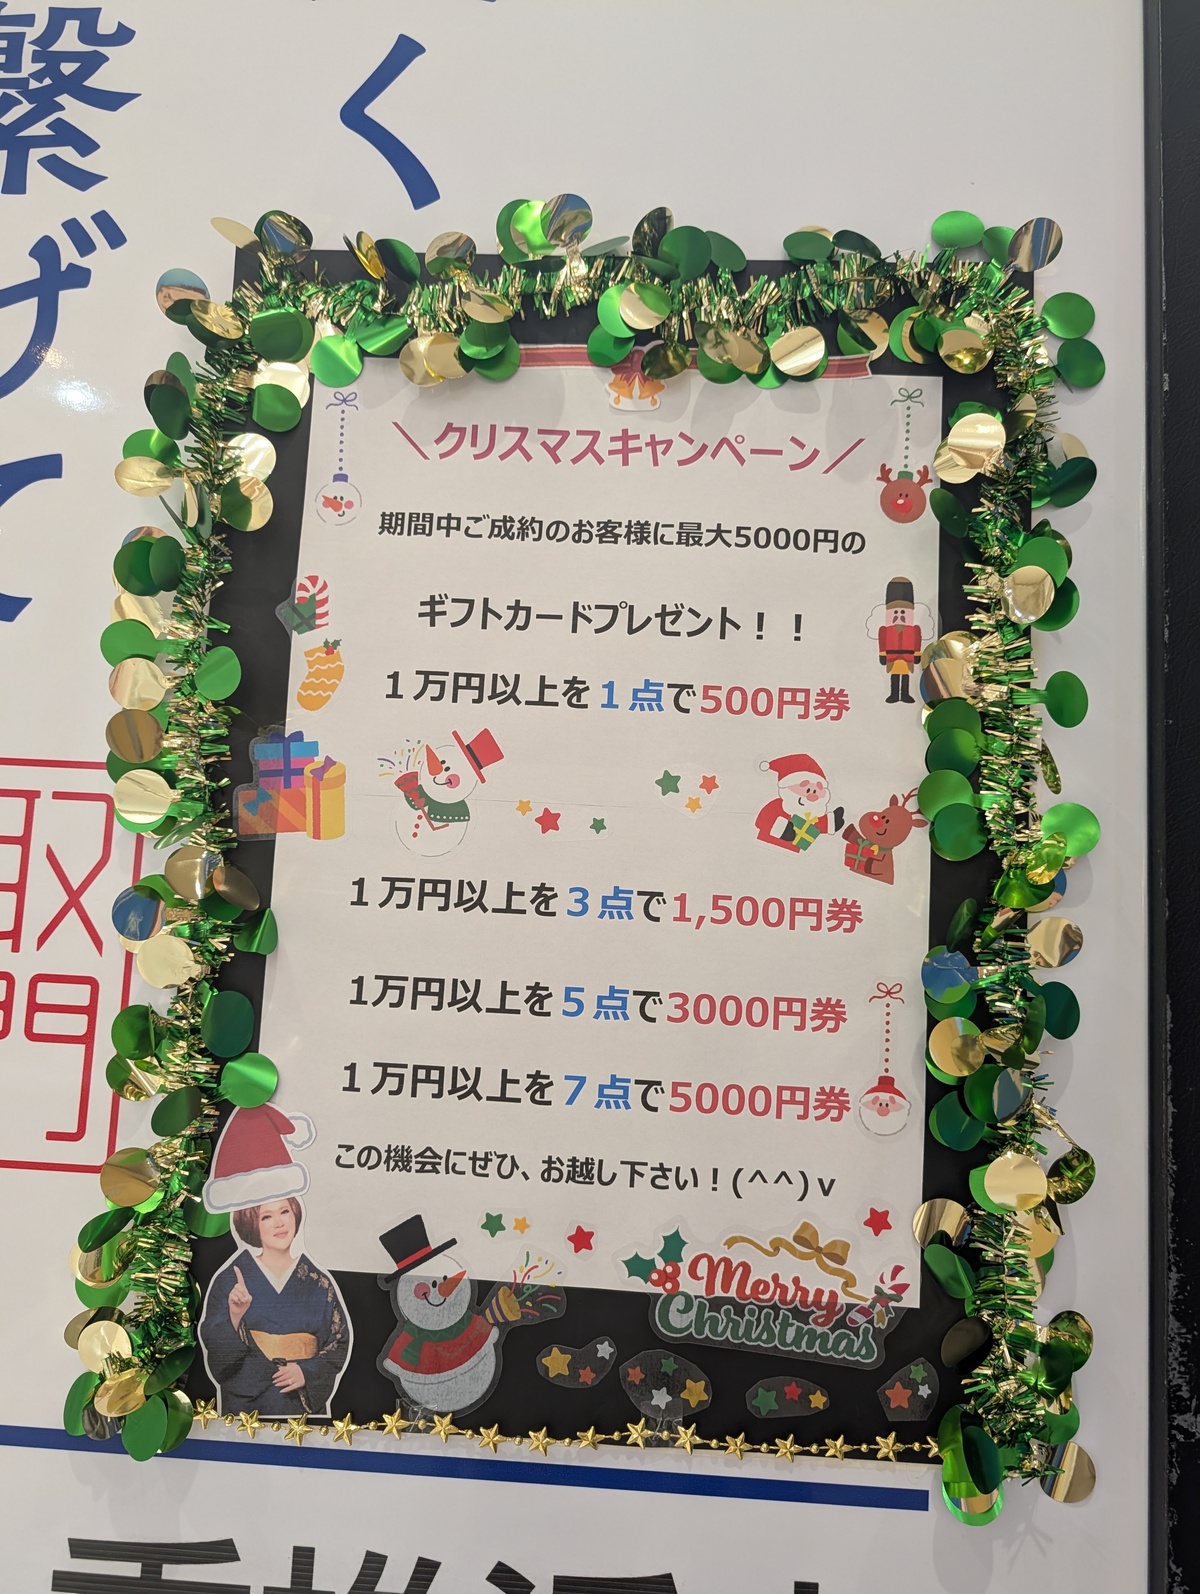 く
繋げて
＼クリスマスキャンペーン／
期間中ご成約のお客様に最大5000円の
ギフトカードプレゼント！！
１万円以上を１点で500円券
１万円以上を３点で1,500円券
1万円以上を５点で3000円券
１万円以上を７点で5000円券
この機会にぜひ、お越し下さい！(^^)ｖ
Merry
Christmas
取
門